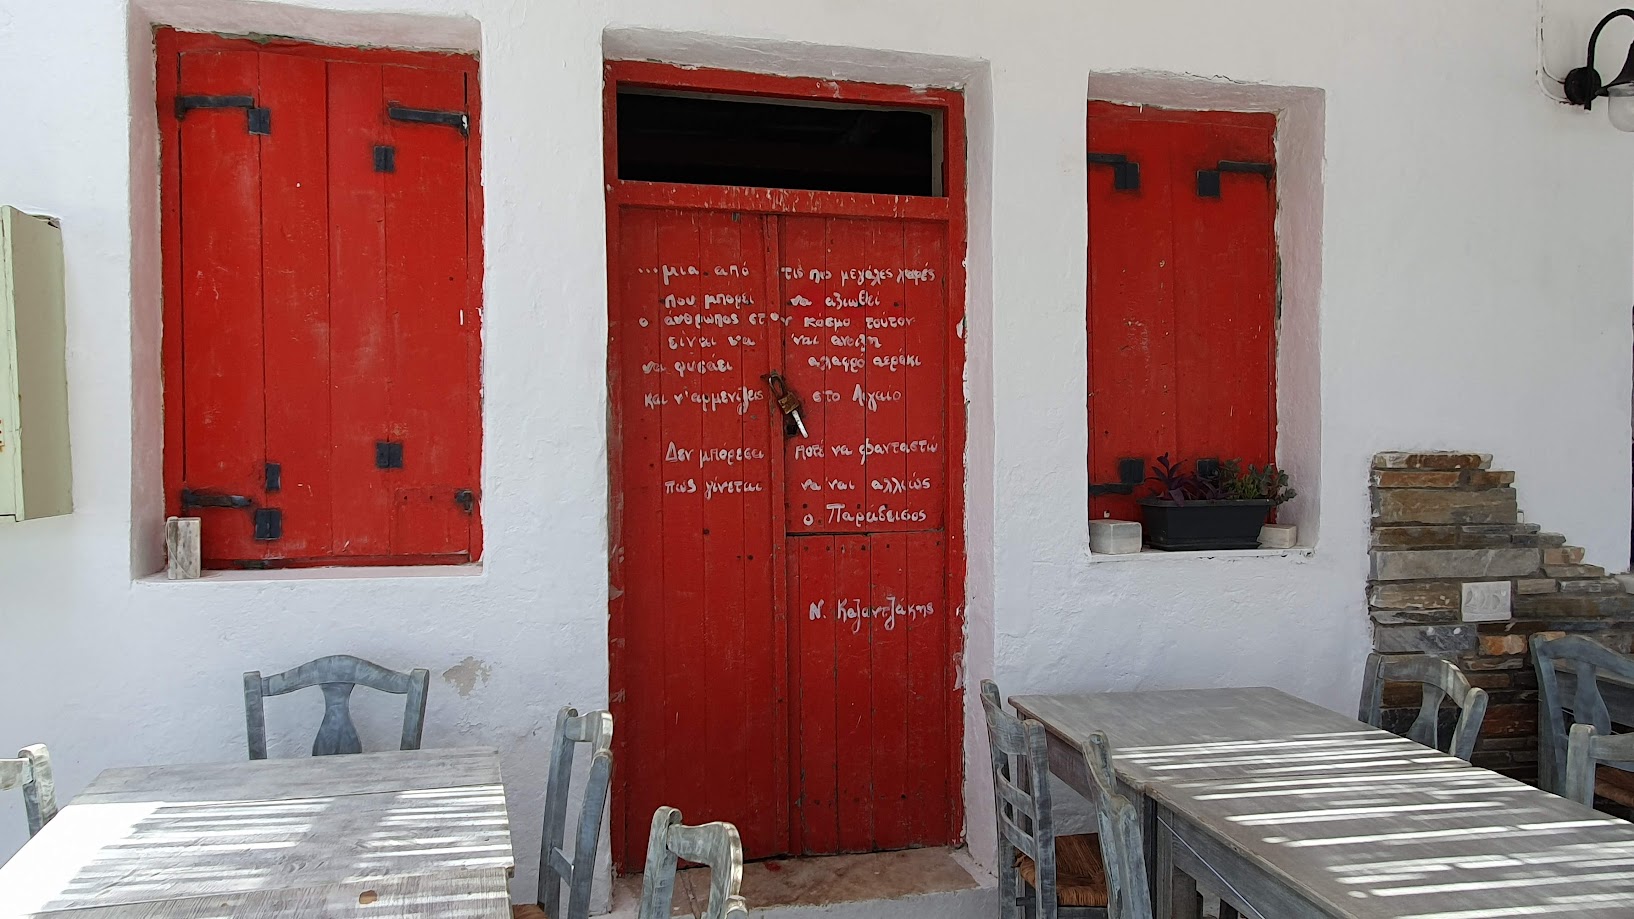 ...μια από τις πιο μεγάλες χαρές
που μπορεί να αξιωθεί
ο άνθρωπος στον κόσμο τούτον
είναι να 'ναι άνοιξη
να φυσάει αλαφρό αεράκι
και ν' αρμενίζεις στο Αιγαίο
Δεν μπόρεσα ποτέ να φανταστώ
πως γίνεται να ναι αλλιώς
ο Παράδεισος
Ν. Καζαντζάκης